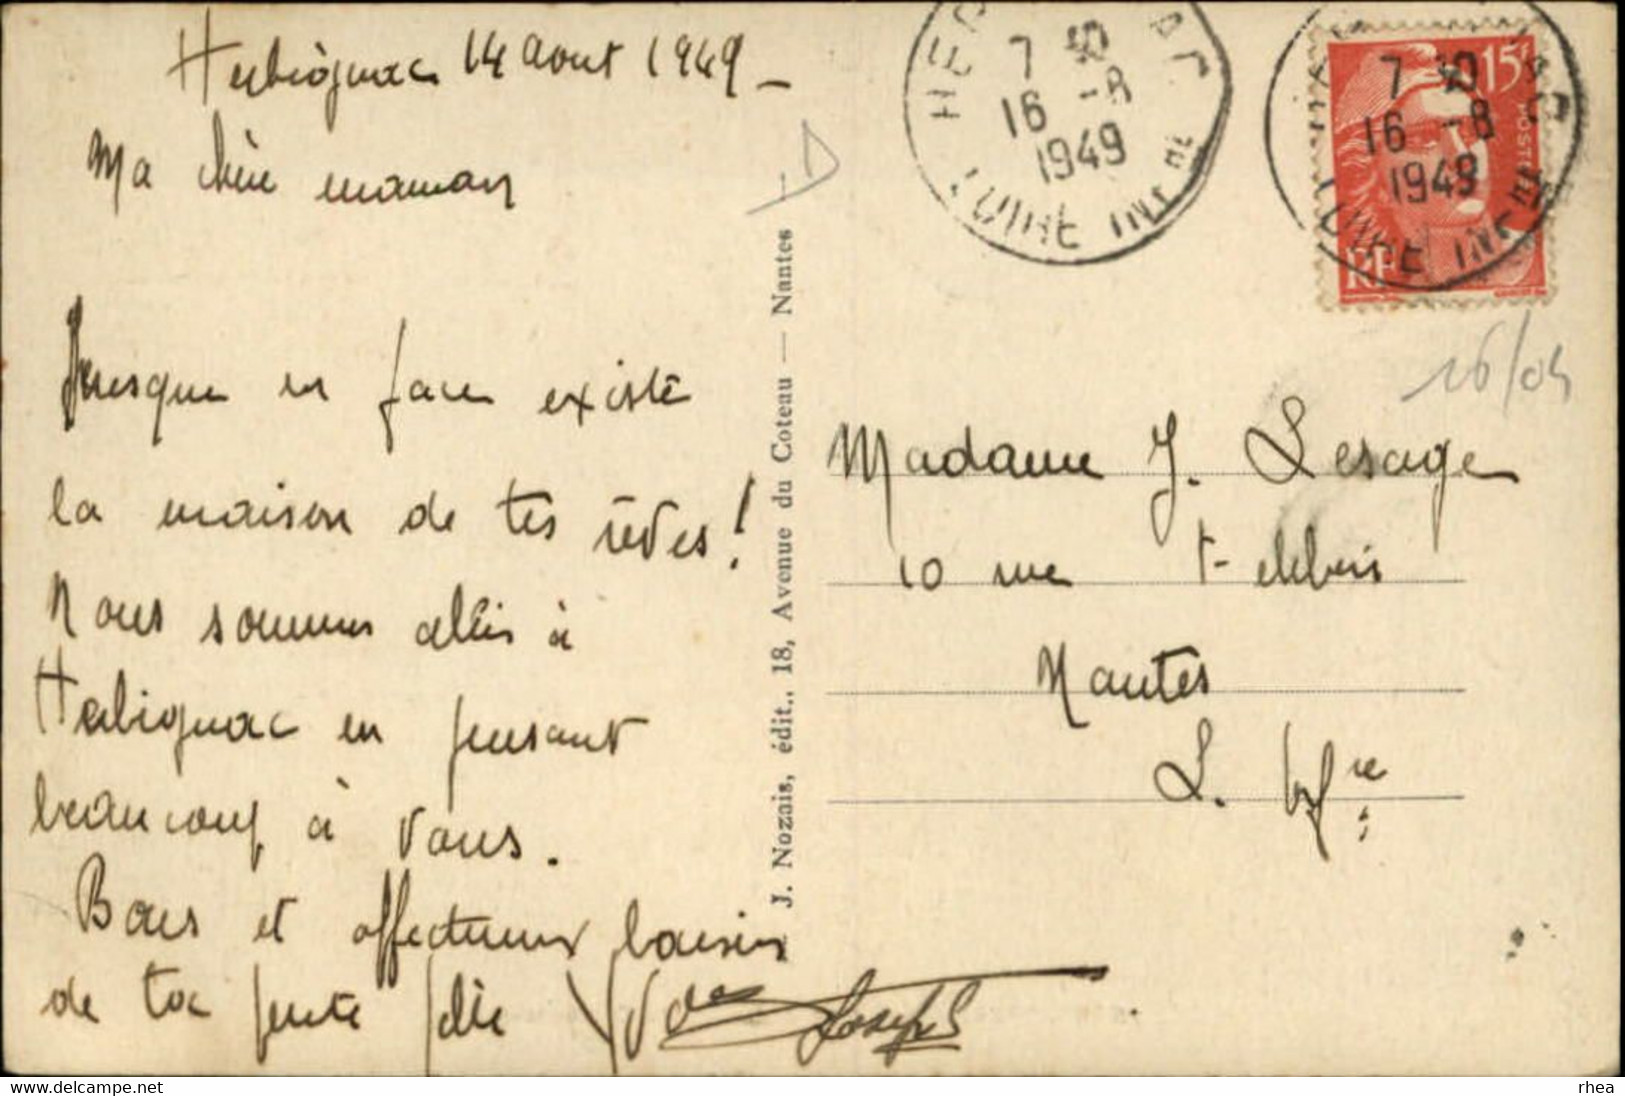 Herbignac 14 Aout 1949 -
Ma chère maman
Presque en face existe
la maison de tes rêves !
Nous sommes allés à
Herbignac en pensant
beaucoup à vous.
Bons et affectueux baisers
de ta petite fille
Joseph
J. Nozais, édit., 18, Avenue du Coteau — Nantes
7
16 -8
1949
LOIRE INF RE
15F
POSTES
RF
7
16 -8
1949
LOIRE INF RE
16/04
Madame J. Lesage
10 rue
Nantes
L. Infre
rhea